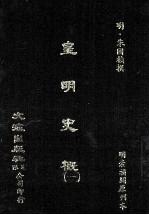 明·朱國禎撰
皇明史概
(一)
明崇禎間原刊本
文海出版社有限公司印行